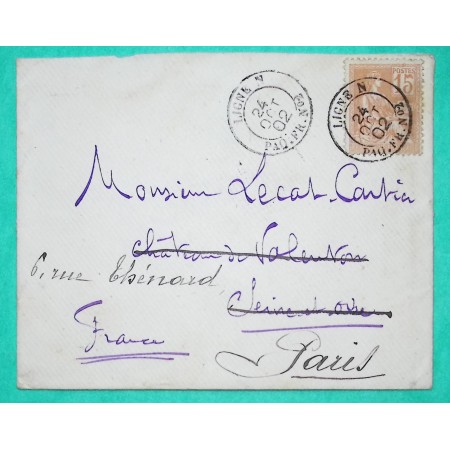 LIGNE N
24
OCT
02
PAQ. FR. Nº 3
LIGNE N
24
OCT
02
PAQ. FR. Nº 3
POSTES
15
Monsieur Lecat-Cartier
Château de Valenton
6, rue Thénard
Seine et Oise
France
Paris